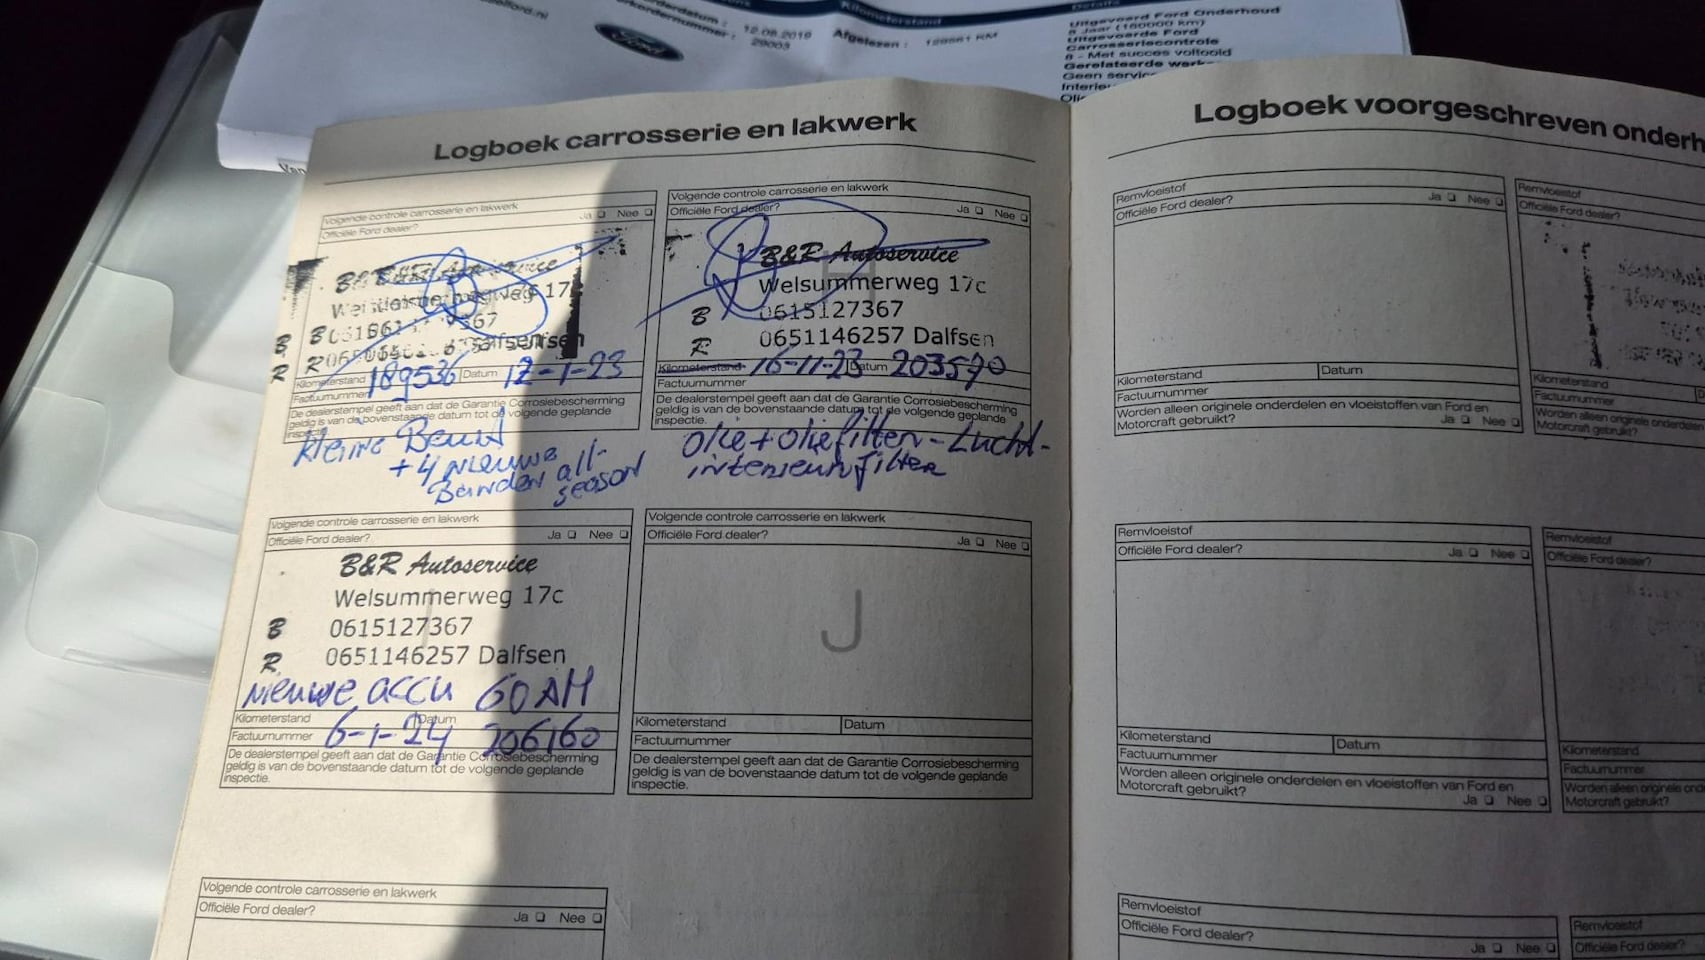 12.08.2019
29003
Ford
Kilometerstand
Afgelezen : 129561 KM
Details
Uitgevoerd Ford Onderhoud
8 Jaar (160000 km)
Uitgevoerde Ford
Carrosseriecontrole
8 - Met succes voltooid
Gerelateerde werk
Geen servic
Interie
Logboek carrosserie en lakwerk
Volgende controle carrosserie en lakwerk
Officiële Ford dealer?
Ja Nee
B&R Autoservice
Kilometerstand 189536 Datum 12-1-23
Factuurnummer
De dealerstempel geeft aan dat de Garantie Corrosiebescherming
geldig is van de bovenstaande datum tot de volgende geplande
inspectie.
kleine Beurt
+ 4 nieuwe
Banden all-
season
Volgende controle carrosserie en lakwerk
Officiële Ford dealer?
Ja Nee
B&R Autoservice
Welsummerweg 17c
B 0615127367
R 0651146257 Dalfsen
Kilometerstand 16-11-23 Datum 203570
Factuurnummer
De dealerstempel geeft aan dat de Garantie Corrosiebescherming
geldig is van de bovenstaande datum tot de volgende geplande
inspectie.
olie + oliefilter - Lucht-
interieurfilter
Volgende controle carrosserie en lakwerk
Officiële Ford dealer?
Ja Nee
B&R Autoservice
Welsummerweg 17c
B 0615127367
R 0651146257 Dalfsen
nieuwe accu 60AH
Kilometerstand Datum
Factuurnummer 6-1-24 206160
De dealerstempel geeft aan dat de Garantie Corrosiebescherming
geldig is van de bovenstaande datum tot de volgende geplande
inspectie.
Volgende controle carrosserie en lakwerk
Officiële Ford dealer?
Ja Nee
J
Kilometerstand Datum
Factuurnummer
De dealerstempel geeft aan dat de Garantie Corrosiebescherming
geldig is van de bovenstaande datum tot de volgende geplande
inspectie.
Volgende controle carrosserie en lakwerk
Officiële Ford dealer?
Ja Nee
Logboek voorgeschreven onderh
Remvloeistof
Officiële Ford dealer?
Ja Nee
Kilometerstand Datum
Factuurnummer
Worden alleen originele onderdelen en vloeistoffen van Ford en
Motorcraft gebruikt?
Ja Nee
Remvloeistof
Officiële Ford dealer?
Kilometerstand
Factuurnummer
Worden alleen originele
Motorcraft gebruikt?
Remvloeistof
Officiële Ford dealer?
Ja Nee
Kilometerstand Datum
Factuurnummer
Worden alleen originele onderdelen en vloeistoffen van Ford en
Motorcraft gebruikt?
Ja Nee
Remvloeistof
Officiële Ford dealer?
Kilometerstand
Factuurnummer
Worden alleen originele ond
Motorcraft gebruikt?
Remvloeistof
Officiële Ford dealer?
Ja Nee
Remvloeistof
Officiële Ford dealer?